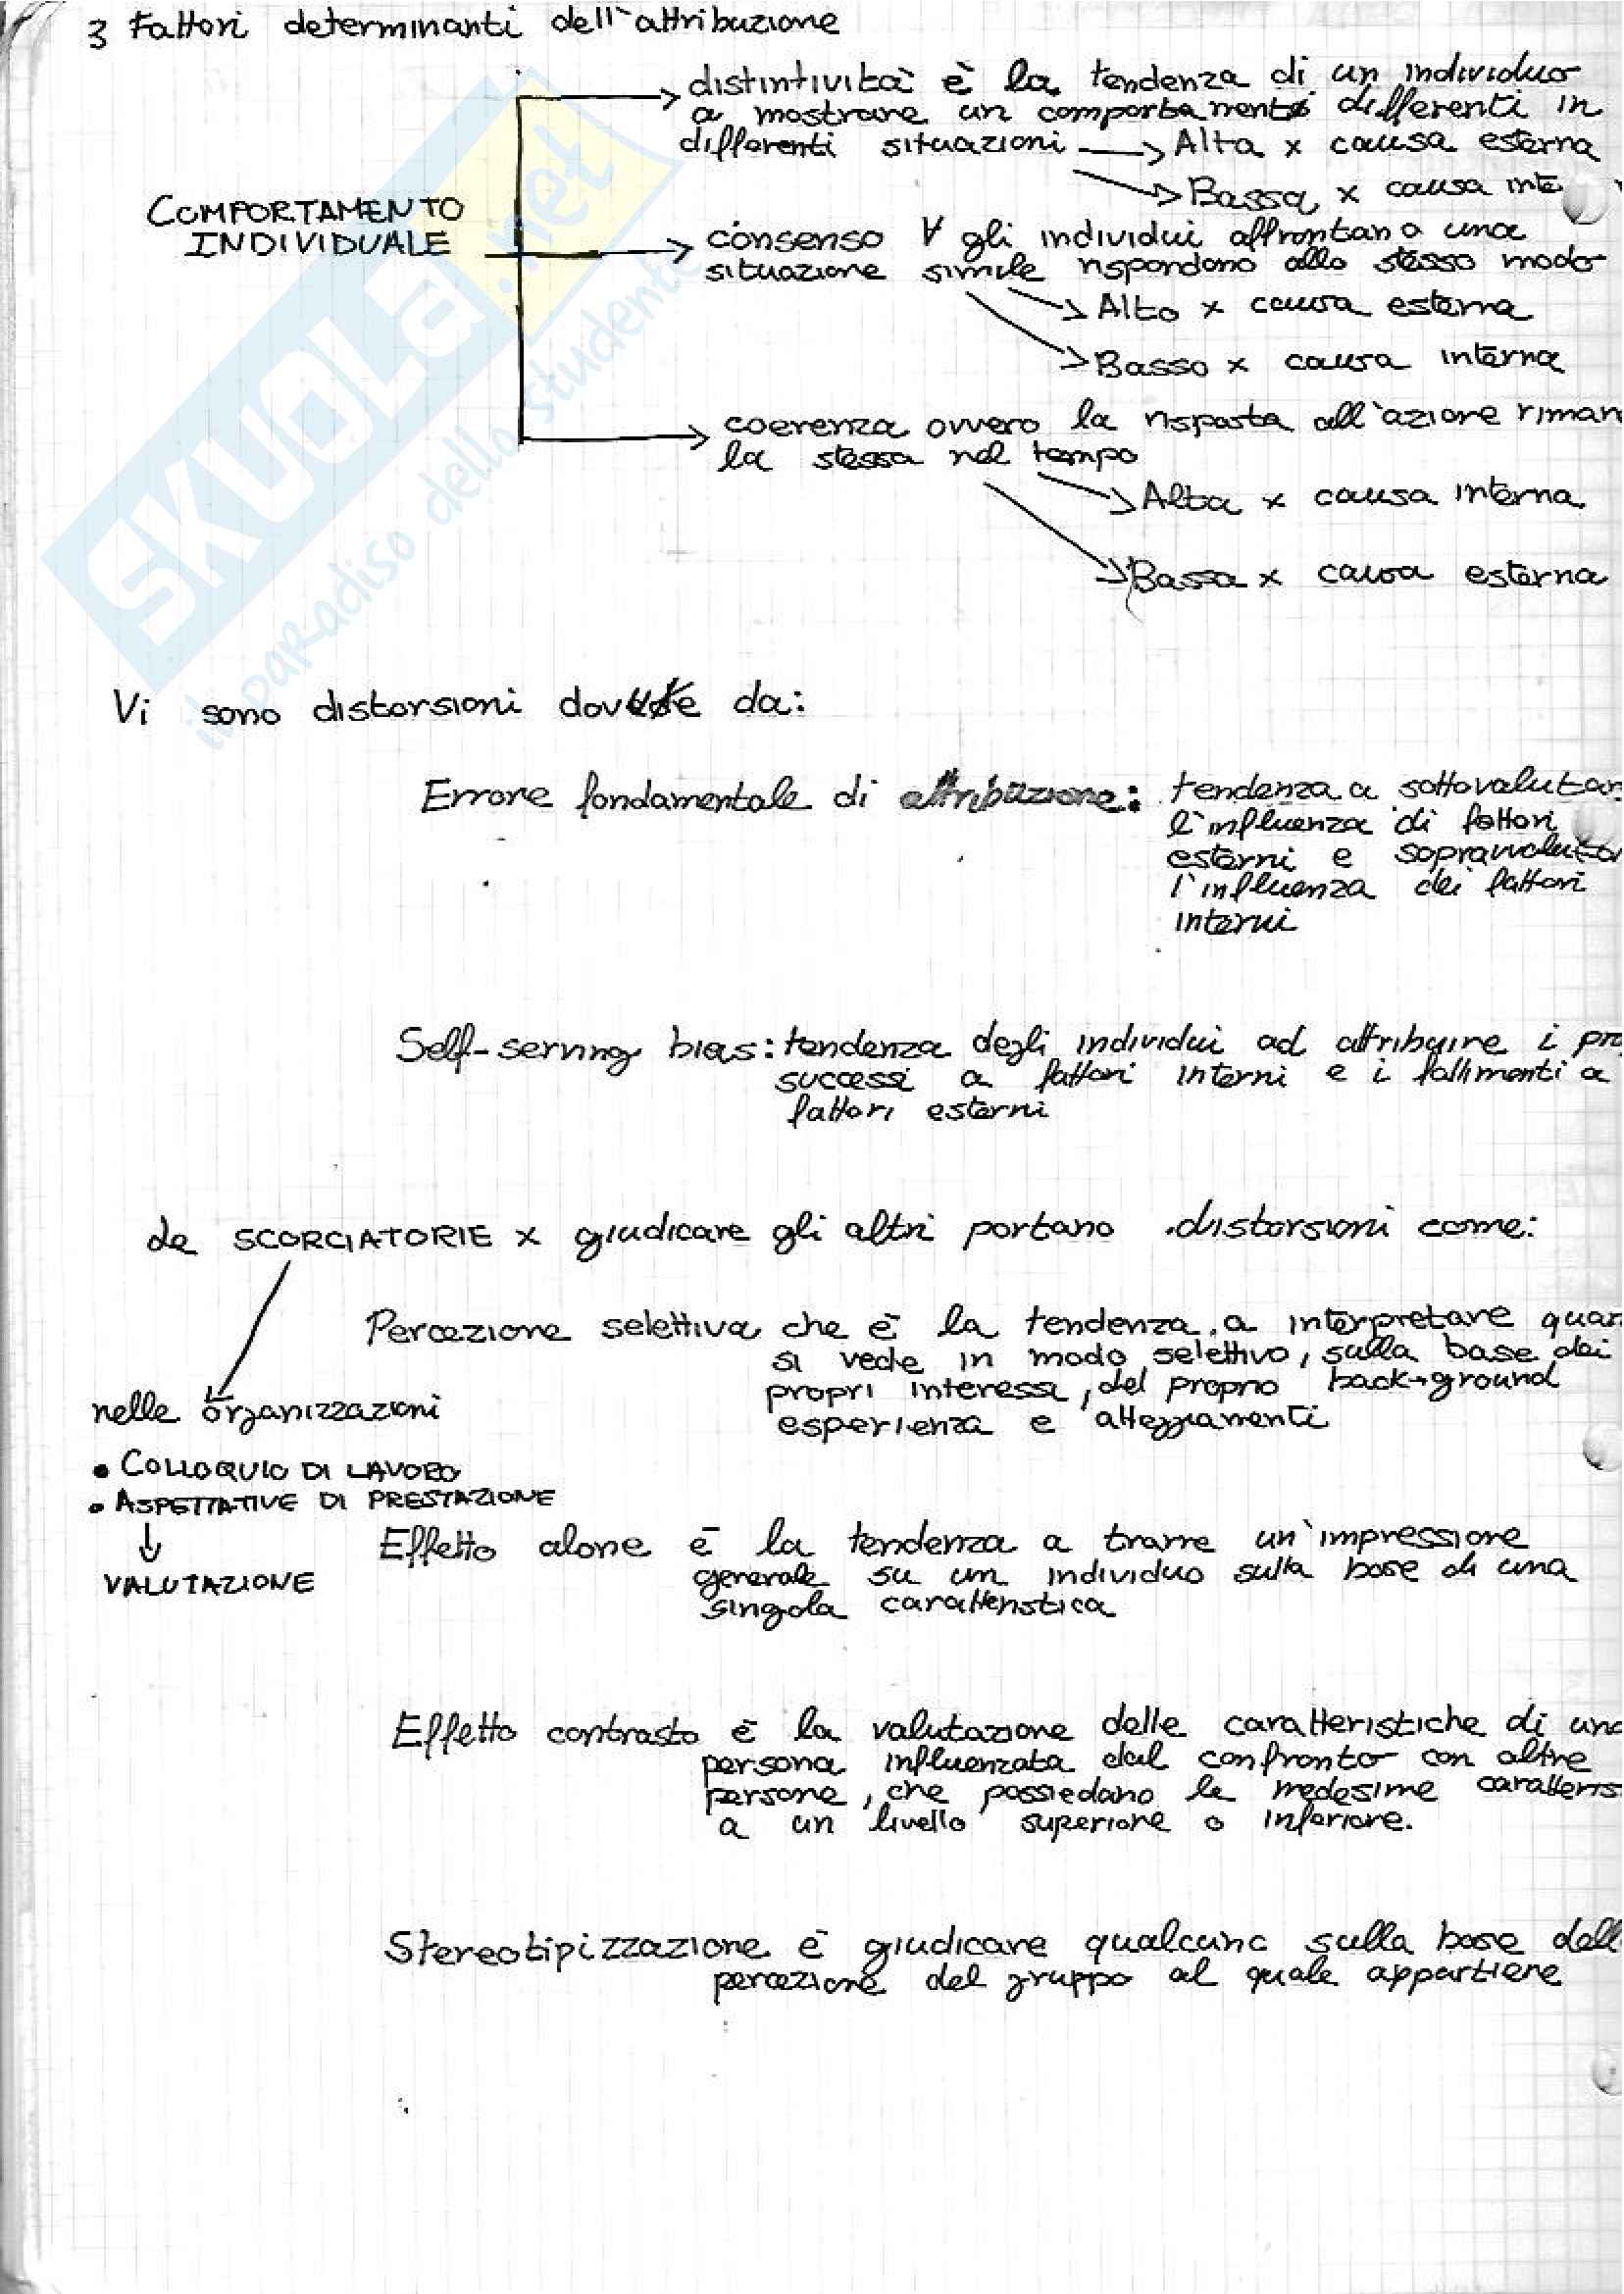 3 Fattori determinanti dell'attribuzione
distintività è la tendenza di un individuo
a mostrare un comportamento differenti in
differenti situazioni → Alta x causa esterna
→ Bassa x causa inte
COMPORTAMENTO
INDIVIDUALE
consenso ∀ gli individui affrontano una
situazione simile rispondono allo stesso modo
→ Alto x causa esterna
→ Basso x causa interna
coerenza ovvero la risposta all'azione riman
la stessa nel tempo
→ Alta x causa interna
→ Bassa x causa esterna
Vi sono distorsioni dovute da:
Errore fondamentale di attribuzione: tendenza a sottovalutar
l'influenza di fattori
esterni e sopravvalutar
l'influenza dei fattori
interni
Self-serving bias: tendenza degli individui ad attribuire i pro
successi a fattori interni e i fallimenti a
fattori esterni
Le SCORCIATORIE x giudicare gli altri portano distorsioni come:
Percezione selettiva che è la tendenza a interpretare quan
si vede in modo selettivo, sulla base dei
propri interessi, del proprio back-ground
esperienza e atteggiamenti
nelle organizzazioni
• COLLOQUIO DI LAVORO
• ASPETTATIVE DI PRESTAZIONE
↓
VALUTAZIONE
Effetto alone è la tendenza a trarre un'impressione
generale su un individuo sulla base di una
singola caratteristica
Effetto contrasto è la valutazione delle caratteristiche di una
persona influenzata dal confronto con altre
persone, che possiedano le medesime caratteris
a un livello superiore o inferiore.
Stereotipizzazione è giudicare qualcuno sulla base dell
percezione del gruppo al quale appartiene
SKUOLA.net
il paradiso dello studente